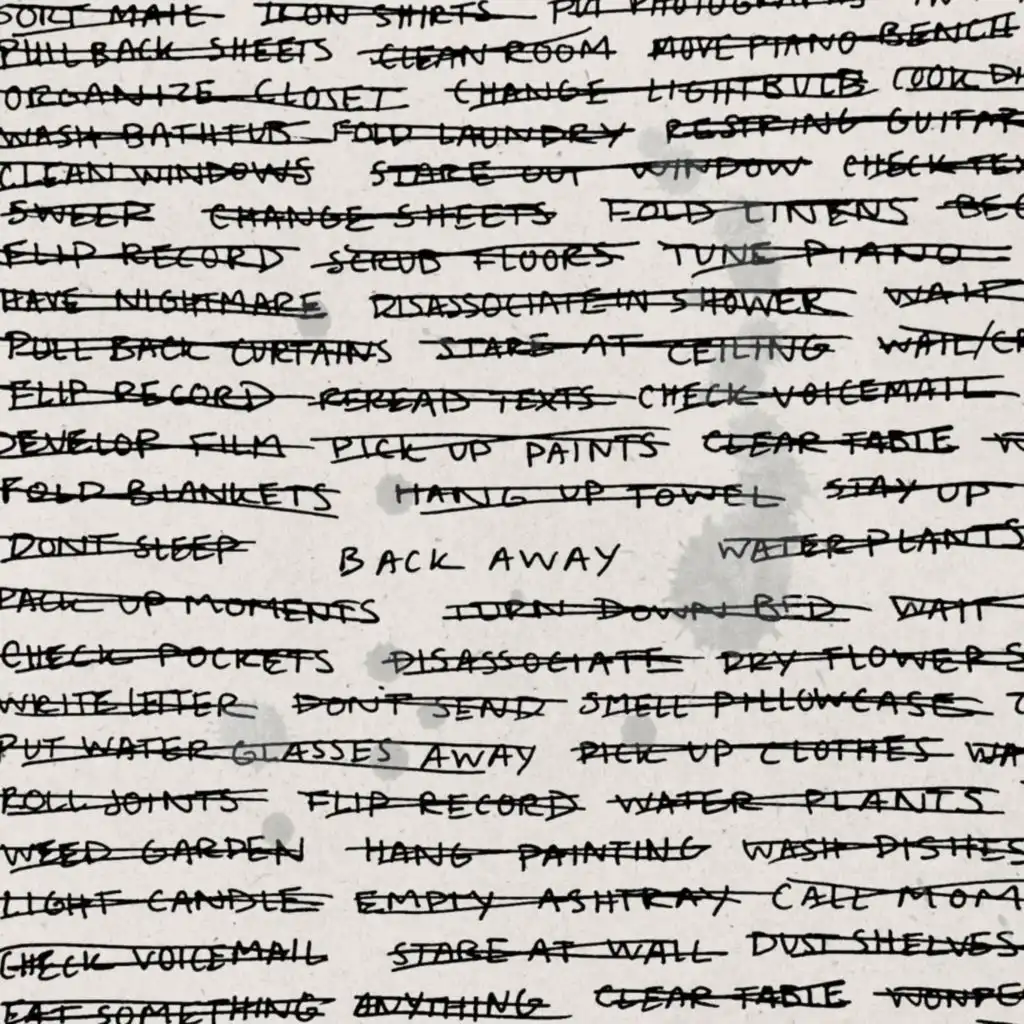 SORT MAIL IRON SHIRTS PUT PHOTOGRAPHS IN
PULL BACK SHEETS CLEAN ROOM MOVE PIANO BENCH
ORGANIZE CLOSET CHANGE LIGHTBULB COOK
WASH BATHTUB FOLD LAUNDRY RESTRING GUITAR
CLEAN WINDOWS STARE OUT WINDOW CHECK
SWEEP CHANGE SHEETS FOLD LINENS
FLIP RECORD SCRUB FLOORS TUNE PIANO
HAVE NIGHTMARE DISASSOCIATE IN SHOWER WAIT
PULL BACK CURTAINS STARE AT CEILING
FLIP RECORD REREAD TEXTS CHECK VOICEMAIL
DEVELOP FILM PICK UP PAINTS CLEAR TABLE
FOLD BLANKETS HANG UP TOWEL STAY UP
DONT SLEEP BACK AWAY WATER PLANTS
PACK UP MOMENTS TURN DOWN BED WAIT
CHECK POCKETS DISASSOCIATE DRY FLOWERS
WRITE LETTER DON'T SEND SMELL PILLOWCASE
PUT WATER GLASSES AWAY PICK UP CLOTHES
ROLL JOINTS FLIP RECORD WATER PLANTS
WEED GARDEN HANG PAINTING WASH DISHES
LIGHT CANDLE EMPTY ASHTRAY CALL MOM
CHECK VOICEMAIL STARE AT WALL DUST SHELVES
EAT SOMETHING ANYTHING CLEAR TABLE